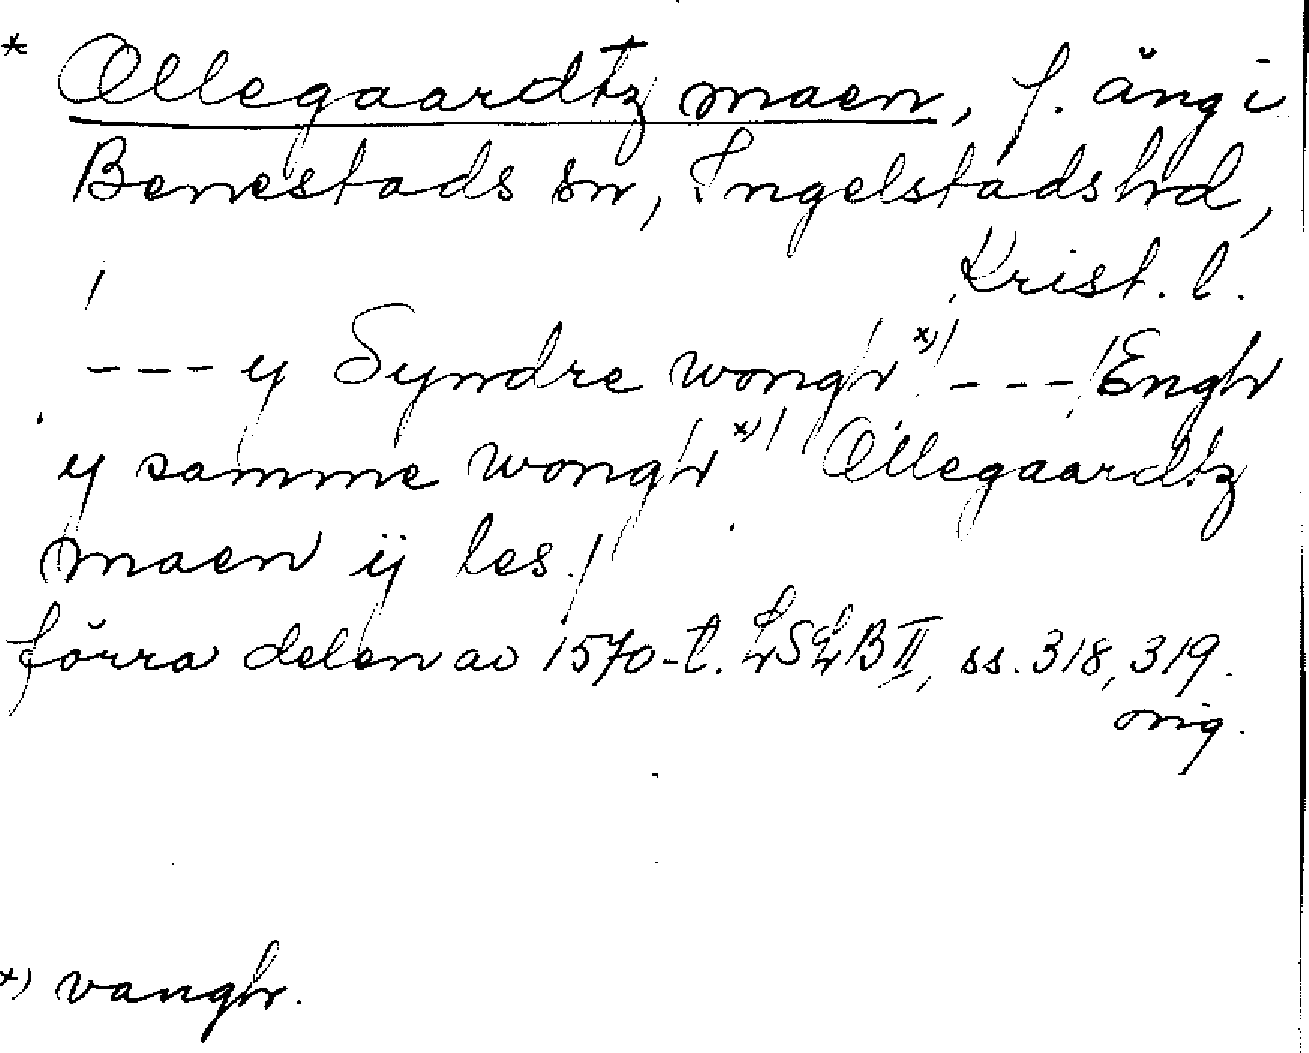 * Ollegaardtz maen, f. äng i
Benestads sn, Ingelstads hd,
Krist. l.
/---y Syndre wongh *)/ ---/Engh
y samme wongh *)/ Ollegaardtz
maen ij les./
förra delen av 1570-t. LSLB II, ss. 318, 319.
orig.
*) vangh.